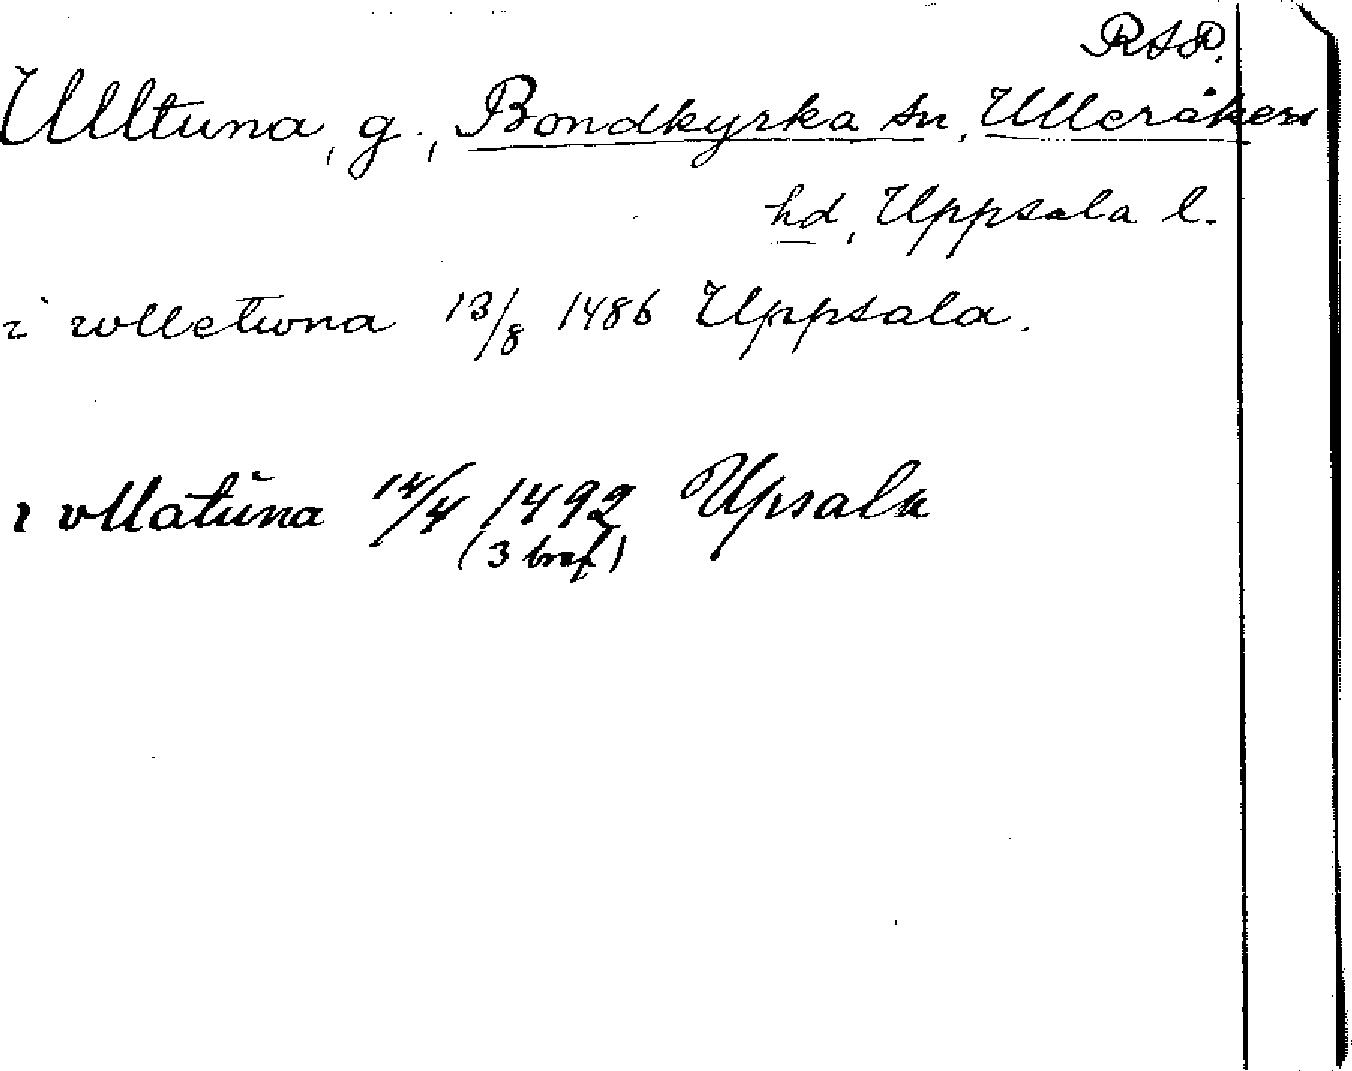 RAP.
Ulltuna, g., Bondkyrka sn, Ulleråkers
hd, Uppsala l.
i wlletwna 13/8 1486 Uppsala.
i vllatŭna 14/4 1492 Upsala
(3 bref)